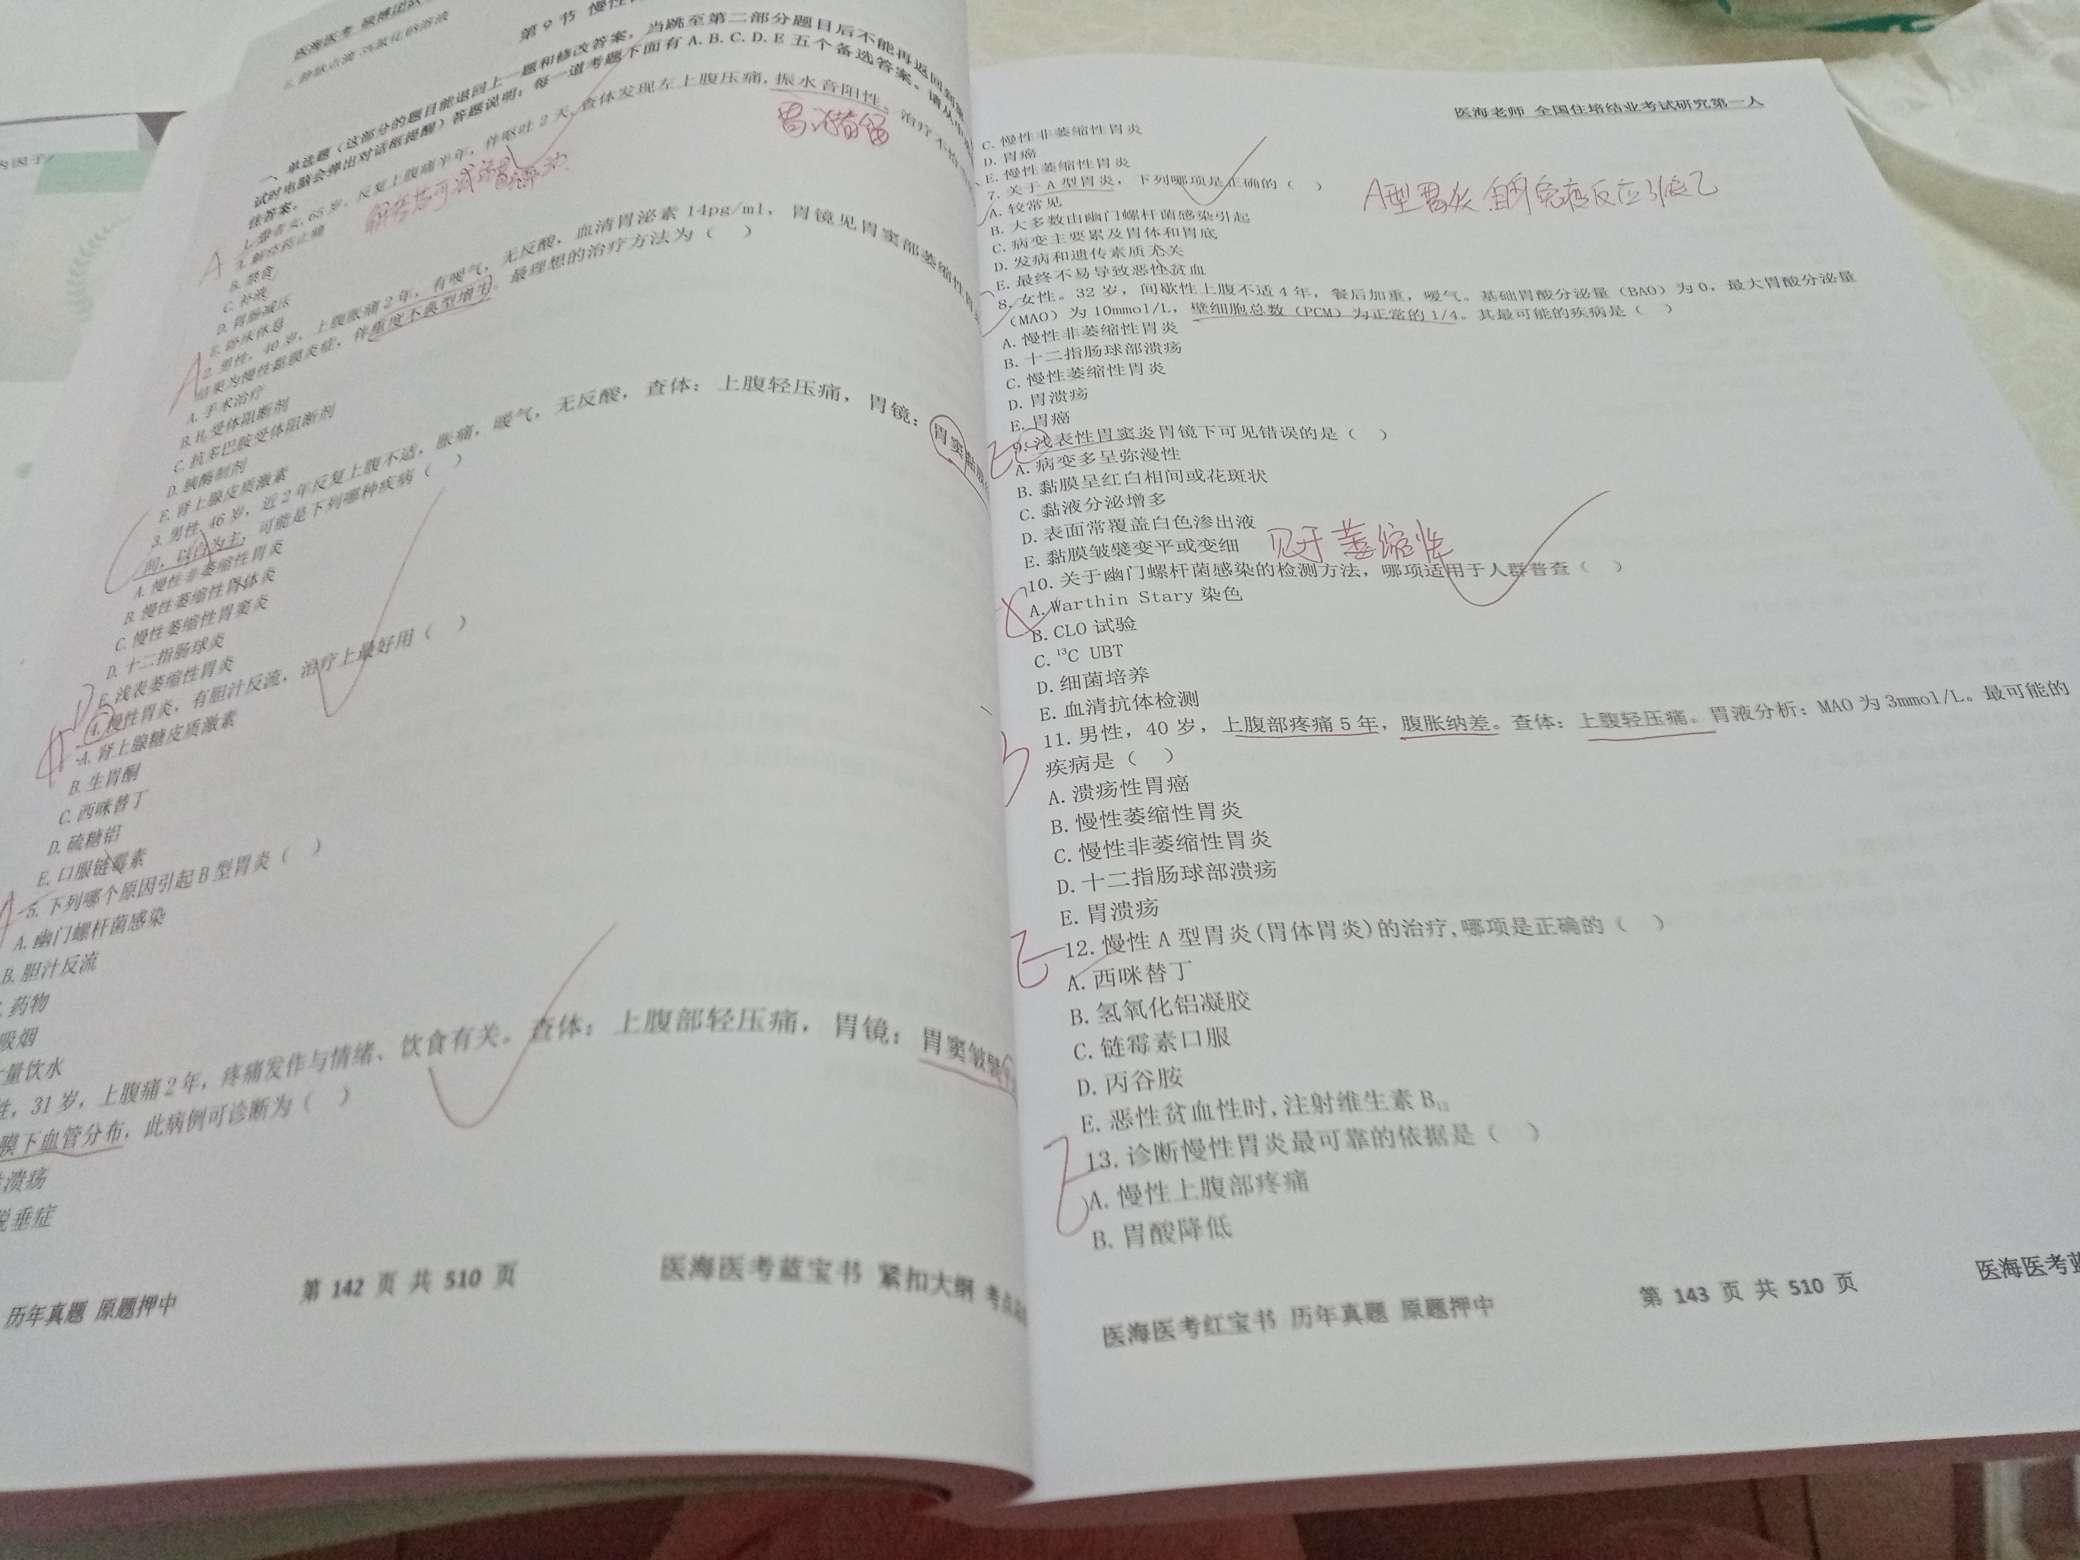 第 9 节 慢性
一、单选题（这部分的题目能退回上一题和修改答案，当跳至第二部分题目后不能再返回到第
试时电脑会弹出对话框提醒）答题说明：每一道考题下面有 A.B.C.D.E 五个备选答案。请从中
佳答案。
1. 患者女,65 岁，反复上腹痛半年，伴呕吐 2 天,查体发现左上腹压痛,振水音阳性。治疗不恰
胃潴留
A. 解痉药止痛
B. 禁食
C. 补液
D. 胃肠减压
E. 卧床休息
2. 男性，40 岁，上腹胀痛 2 年，有嗳气，无反酸，血清胃泌素 14pg/ml，胃镜见胃窦部萎缩性
结果为慢性黏膜炎症，伴重度不典型增生。最理想的治疗方法为（ ）
A. 手术治疗
B. H₂受体阻断剂
C. 抗多巴胺受体阻断剂
D. 胰酶制剂
E. 肾上腺皮质激素
3. 男性，46 岁，近 2 年反复上腹不适，胀痛，嗳气，无反酸，查体：上腹轻压痛，胃镜：胃窦黏膜
间，以白为主，可能是下列哪种疾病（ ）
A. 慢性非萎缩性胃炎
B. 慢性萎缩性胃体炎
C. 慢性萎缩性胃窦炎
D. 十二指肠球炎
E. 浅表萎缩性胃炎
4. 慢性胃炎，有胆汁反流，治疗上最好用（ ）
A. 肾上腺糖皮质激素
B. 生胃酮
C. 西咪替丁
D. 硫糖铝
E. 口服链霉素
A
5. 下列哪个原因引起 B 型胃炎（ ）
A. 幽门螺杆菌感染
B. 胆汁反流
药物
吸烟
量饮水
性，31 岁，上腹痛 2 年，疼痛发作与情绪、饮食有关。查体：上腹部轻压痛，胃镜：胃窦皱襞
膜下血管分布，此病例可诊断为（ ）
溃疡
脱垂症
历年真题 原题押中
第 142 页 共 510 页
医海医考蓝宝书 紧扣大纲 考点
医海老师 全国住培结业考试研究第一人
C. 慢性非萎缩性胃炎
D. 胃癌
E. 慢性萎缩性胃炎
7. 关于 A 型胃炎，下列哪项是正确的（ ）
A型胃炎 自身免疫反应引起
A. 较常见
B. 大多数由幽门螺杆菌感染引起
C. 病变主要累及胃体和胃底
D. 发病和遗传素质无关
E. 最终不易导致恶性贫血
8. 女性。32 岁，间歇性上腹不适 4 年，餐后加重，嗳气。基础胃酸分泌量（BAO）为 0，最大胃酸分泌量
（MAO）为 10mmol/L，壁细胞总数（PCM）为正常的 1/4。其最可能的疾病是（ ）
A. 慢性非萎缩性胃炎
B. 十二指肠球部溃疡
C. 慢性萎缩性胃炎
D. 胃溃疡
E. 胃癌
9. 浅表性胃窦炎胃镜下可见错误的是（ ）
A. 病变多呈弥漫性
B. 黏膜呈红白相间或花斑状
C. 黏液分泌增多
D. 表面常覆盖白色渗出液
E. 黏膜皱襞变平或变细 见于萎缩性
10. 关于幽门螺杆菌感染的检测方法，哪项适用于人群普查（ ）
A. Warthin Stary 染色
B. CLO 试验
C. ¹³C UBT
D. 细菌培养
E. 血清抗体检测
11. 男性，40 岁，上腹部疼痛 5 年，腹胀纳差。查体：上腹轻压痛。胃液分析：MAO 为 3mmol/L。最可能的
疾病是（ ）
A. 溃疡性胃癌
B. 慢性萎缩性胃炎
C. 慢性非萎缩性胃炎
D. 十二指肠球部溃疡
E. 胃溃疡
E
12. 慢性 A 型胃炎(胃体胃炎)的治疗,哪项是正确的（ ）
A. 西咪替丁
B. 氢氧化铝凝胶
C. 链霉素口服
D. 丙谷胺
E. 恶性贫血性时,注射维生素 B₁₂
13. 诊断慢性胃炎最可靠的依据是（ ）
A. 慢性上腹部疼痛
B. 胃酸降低
医海医考红宝书 历年真题 原题押中
第 143 页 共 510 页
医海医考蓝